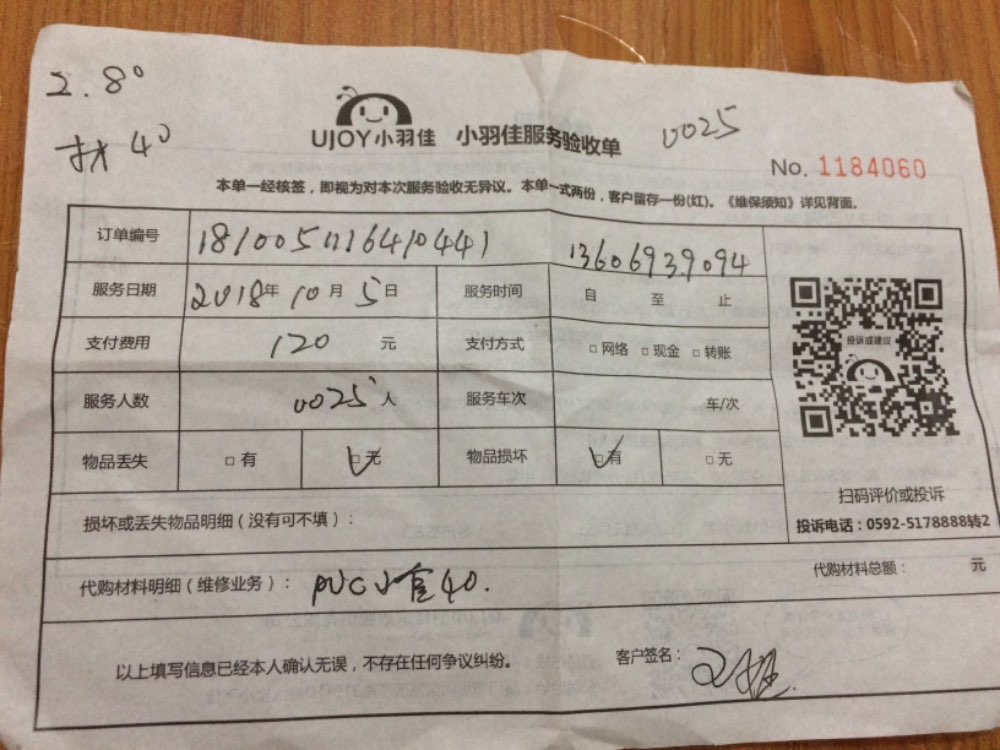 2.8°
扶 4°
UJOY小羽佳 小羽佳服务验收单 0025
No. 1184060
本单一经核签，即视为对本次服务验收无异议。本单一式两份，客户留存一份(红)。《维保须知》详见背面。
订单编号 1810051116410441 13606939094
服务日期 2018年 10月 5日 服务时间 自 至 止
支付费用 120 元 支付方式 □网络 □现金 □转账
投诉或建议
服务人数 0025 人 服务车次 车/次
物品丢失 □有 □无 物品损坏 □有 □无
扫码评价或投诉
损坏或丢失物品明细（没有可不填）：
投诉电话：0592-5178888转2
代购材料明细（维修业务）： PVC小盒40. 代购材料总额： 元
以上填写信息已经本人确认无误，不存在任何争议纠纷。 客户签名：